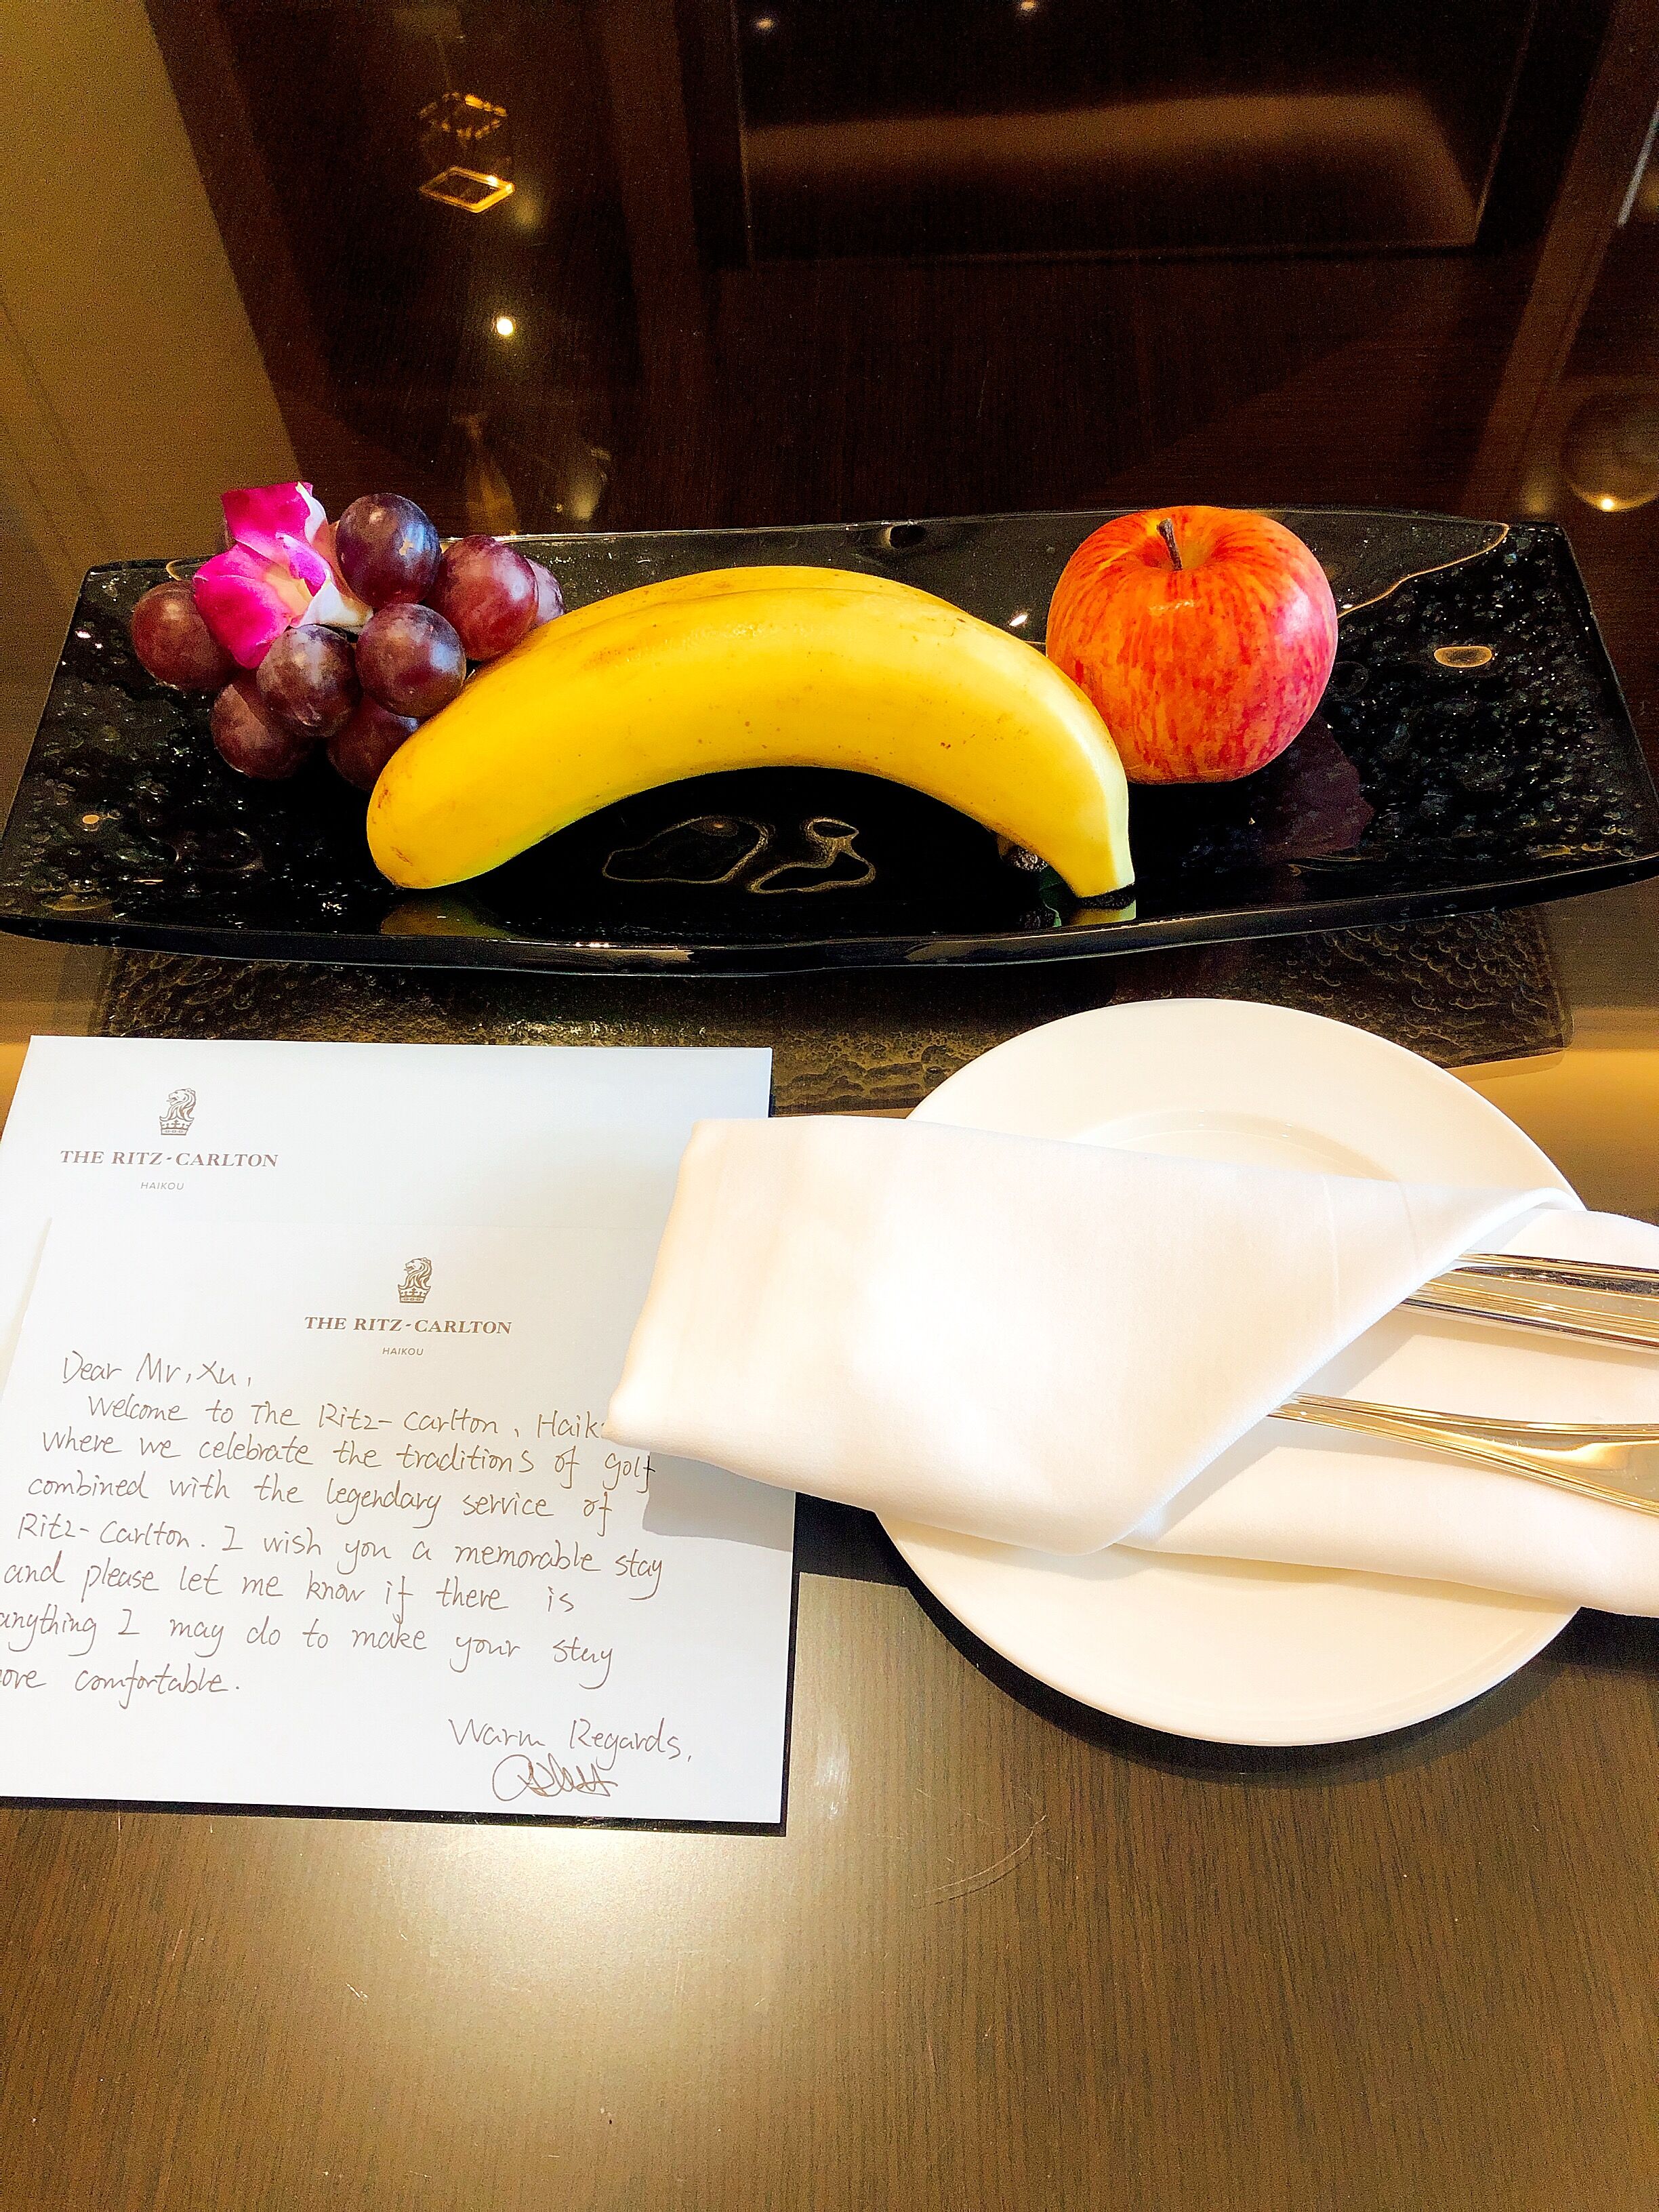 THE RITZ-CARLTON
HAIKOU
THE RITZ-CARLTON
HAIKOU
Dear Mr, Xu,
Welcome to The Ritz-Carlton, Haik
where we celebrate the traditions of golf
combined with the legendary service of
Ritz-Carlton. I wish you a memorable stay
and please let me know if there is
anything I may do to make your stay
ore comfortable.
Warm Regards,